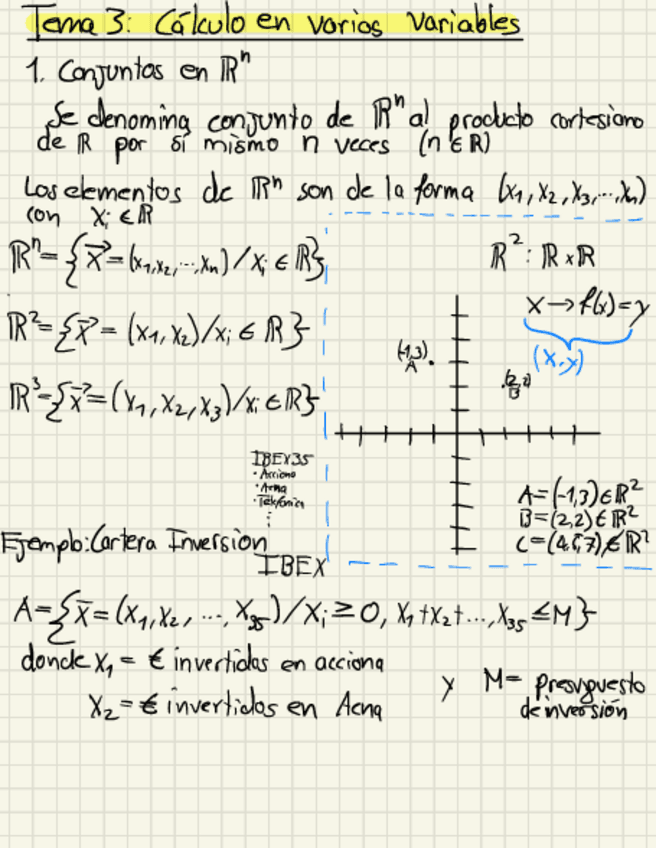 Tema 3: Cálculo en varias variables
1. Conjuntos en ℝⁿ
Se denomina conjunto de ℝⁿ al producto cartesiano
de ℝ por sí mismo n veces (n ∈ ℝ)
Los elementos de ℝⁿ son de la forma (x₁, x₂, x₃, ..., xₙ)
con xᵢ ∈ ℝ
ℝⁿ = {x⃗ = (x₁, x₂, ..., xₙ) / xᵢ ∈ ℝ}
ℝ² = {x⃗ = (x₁, x₂) / xᵢ ∈ ℝ}
ℝ³ = {x⃗ = (x₁, x₂, x₃) / xᵢ ∈ ℝ}
ℝ²: ℝ x ℝ
x → f(x) = y
(x, y)
(-1,3)
A
(2,2)
B
A = (-1,3) ∈ ℝ²
B = (2,2) ∈ ℝ²
IBEX35
· Acciona
· Acerna
· Telefónica
⋮
Ejemplo: Cartera Inversión
IBEX
A = {x⃗ = (x₁, x₂, ..., x₃₅) / xᵢ ≥ 0, x₁ + x₂ + ..., x₃₅ ≤ M}
donde x₁ = € invertidos en acciona
x₂ = € invertidos en
y M = presupuesto
de inversión